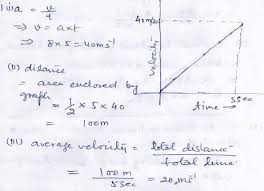 (i) a = v/t
⇒ v = axt
⇒ 8 x 5 = 40ms⁻¹
(ii) distance
= area enclosed by
graph
= 1/2 x 5 x 40
= 100m
(iii) average velocity = total distance / total time
= 100m / 5sec = 20ms⁻¹
40m/s
velocity
time →
5sec